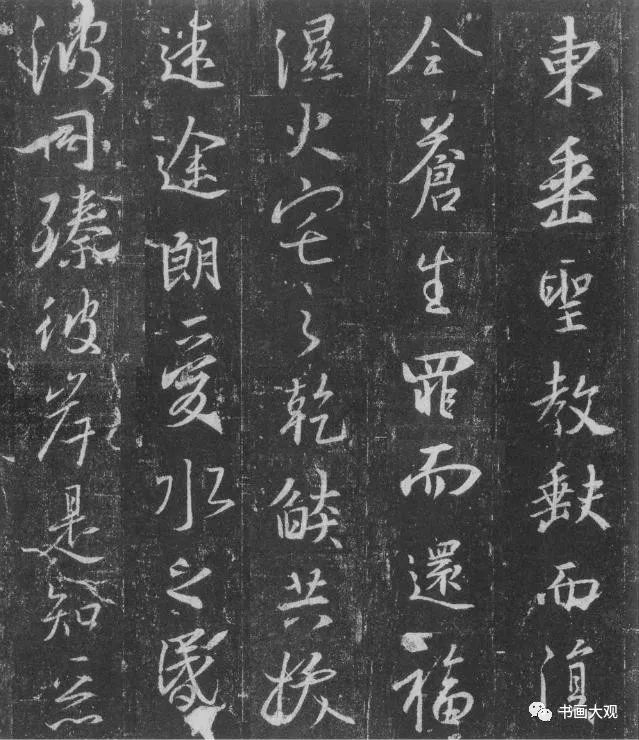 東垂聖教缺而復
全蒼生罪而還福
濕火宅之乾燄共拔
迷途朗愛水之昏
波同臻彼岸是知惡
书画大观